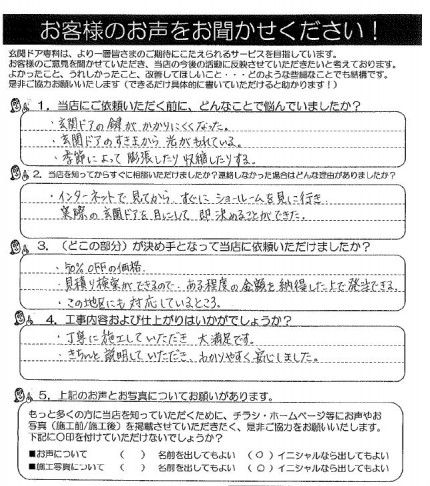 お客様のお声をお聞かせください！
玄関ドア専科は、より一層皆さまのご期待にこたえられるサービスを目指しています。
お客様のご意見を聞かせていただき、当店の今後の活動に反映させていただきたいと考えております。
よかったこと、うれしかったこと、改善してほしいこと・・・どのような些細なことでも結構です。
是非ご協力お願いします（できるだけ具体的に書いていただけると助かります！）
1．当店にご依頼いただく前に、どんなことで悩んでいましたか？
・玄関ドアの鍵がかかりにくくなった。
・玄関ドアのすきまから光がもれている。
・季節によって膨張したり収縮したりする。
2．当店を知ってからすぐに相談いただけましたか？連絡しなかった場合はどんな理由がありましたか？
・インターネットで見てから、すぐにショールームを見に行き
実際の玄関ドアを目にして即決めることができた。
3．（どこの部分）が決め手となって当店に依頼いただけましたか？
・50％OFFの価格
・見積り検索ができるので、ある程度の金額を納得した上で発注できる。
・この地区にも対応しているところ。
4．工事内容および仕上がりはいかがでしょうか？
・丁寧に施工していただき大満足です。
・きちんと説明していただき、わかりやすく安心しました。
5．上記のお声とお写真についてお願いがあります。
もっと多くの方に当店を知っていただくために、チラシ・ホームページ等にお声やお
写真（施工前/施工後）を掲載させていただきたく、是非ご協力をお願いいたします。
下記に〇印を付けていただけないでしょうか？
■お声について （ ） 名前を出してもよい （〇）イニシャルなら出してもよい
■施工写真について （ ） 名前を出してもよい （〇）イニシャルなら出してもよい